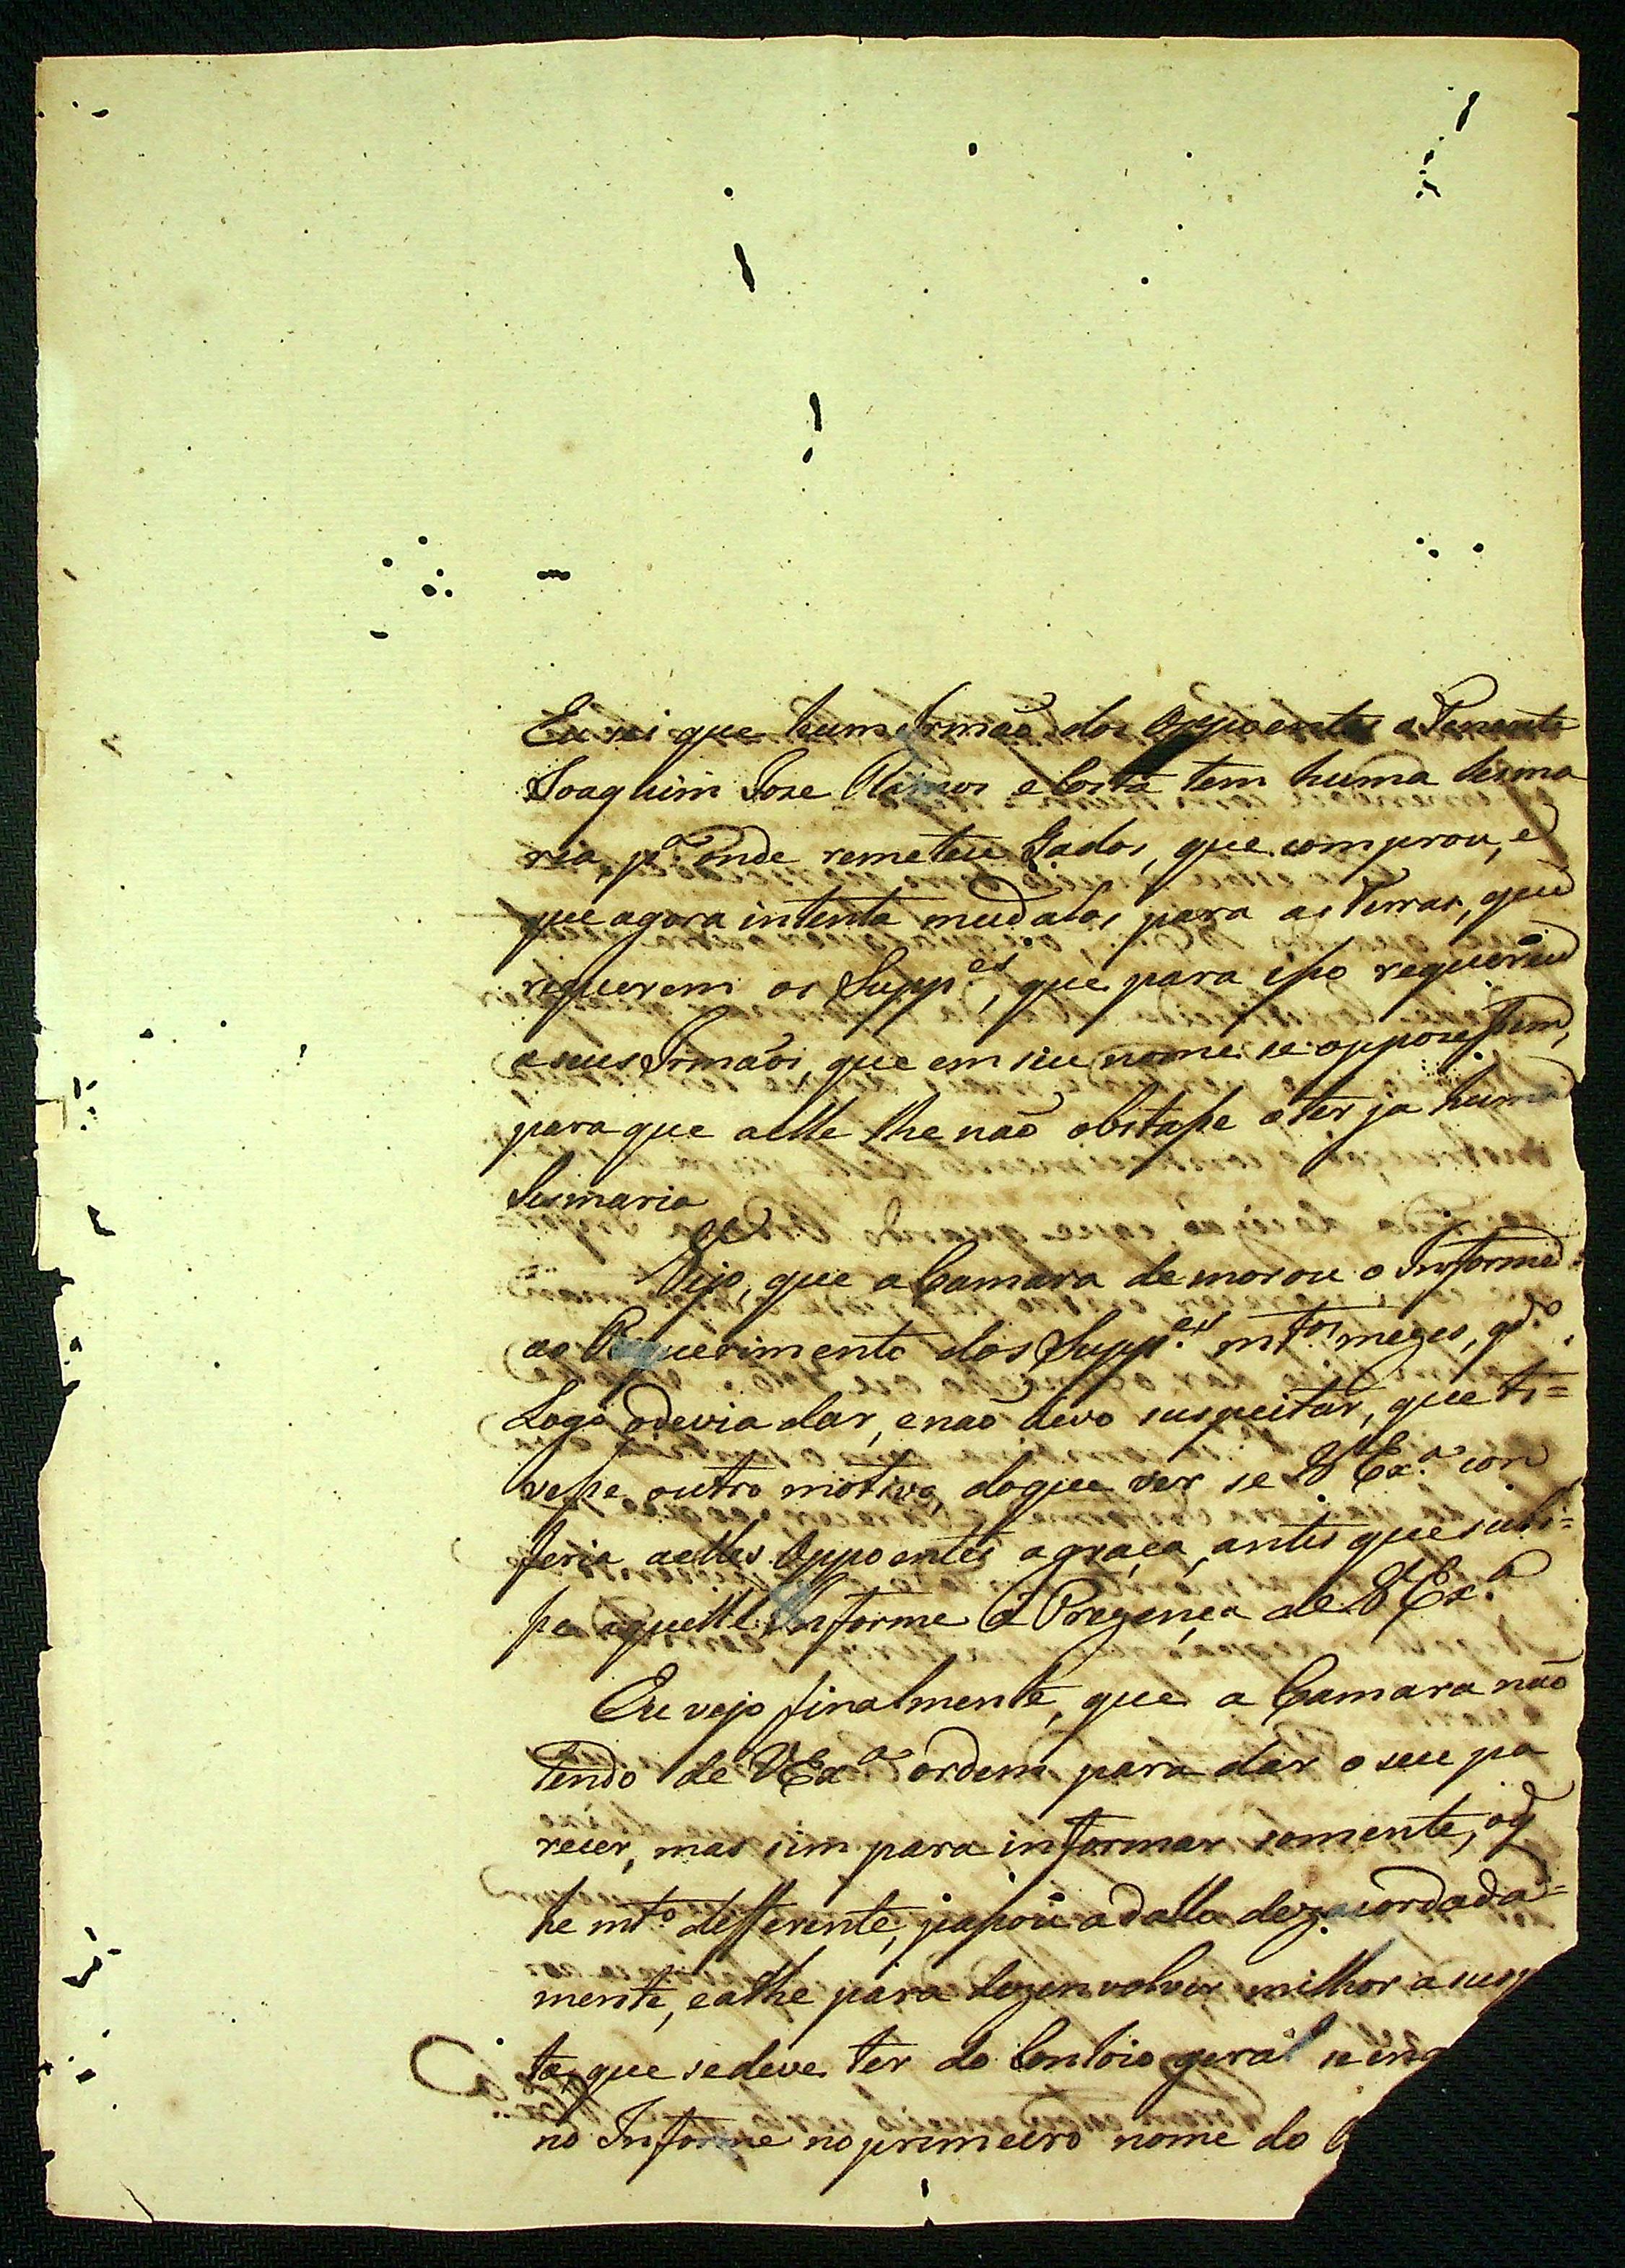 Eu sei que hum Irmaõ dos Oppoentes o Tenente
Joaquim Joze Ramos e Costa tem huma Sesma
ria, p.ª onde remeteu Gados, que comprou, e
que agora intenta mudalos para as Terras, que
requerem os Supp.es, que para isso requereu
a seus Irmaõs, que em seu nome se oppozessem,
para que a elle lhe naõ obstasse o ter ja huma
Sesmaria
Vejo, que a Camara demorou o Informe
ao Requerimento dos Supp.es m.tos mezes, q.do
Logo o devia dar, e naõ devo suspeitar, que ti=
vesse outro motivo, do que ver se V Ex.ª con
feria a elles Oppoentes a graça, antes que subi=
se aquelle Informe á Prezença de V Ex.ª
Eu vejo finalmente, que a Camara naõ
tendo de V Ex.ª ordem para dar o seu pa
recer, mas sim para informar somente, o q
he m.to defferente, passou a dallo dezacordada=
mente, e athe para dezenvolver milhor a susp
ta, que se deve ter do Conloio geral se
no Informe no primeiro nome do